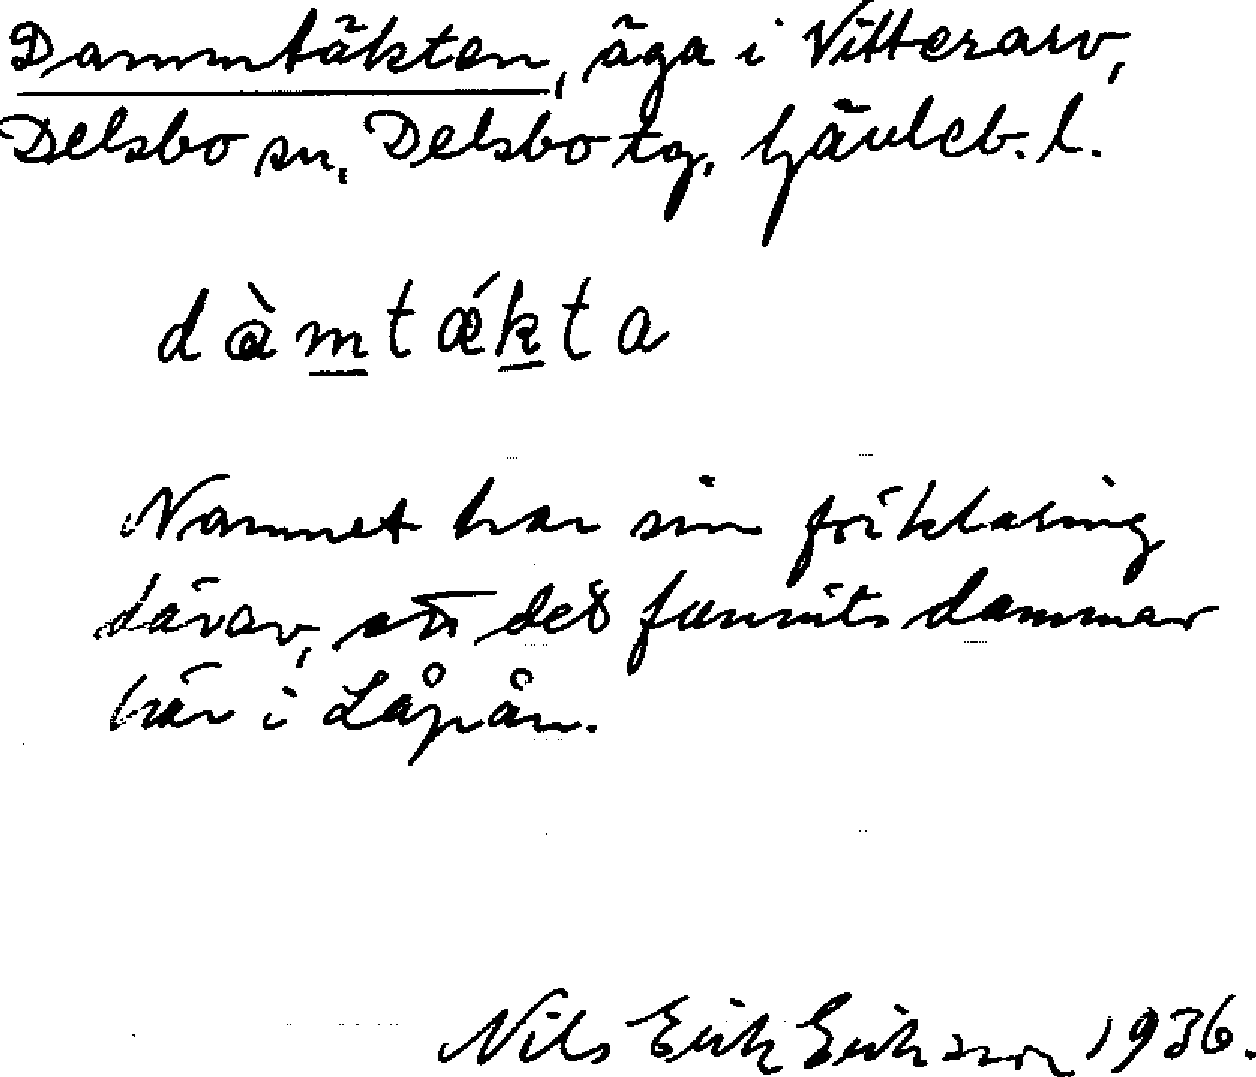 Dammtäkten, äga i Vitterarv,
Delsbo sn, Delsbo tg, Gävleb. l.
dàm̲tǽk̲ta
Namnet har sin förklaring
därav, att det funnits dammar
här i Låpån.
Nils Erik Eriksson 1936.